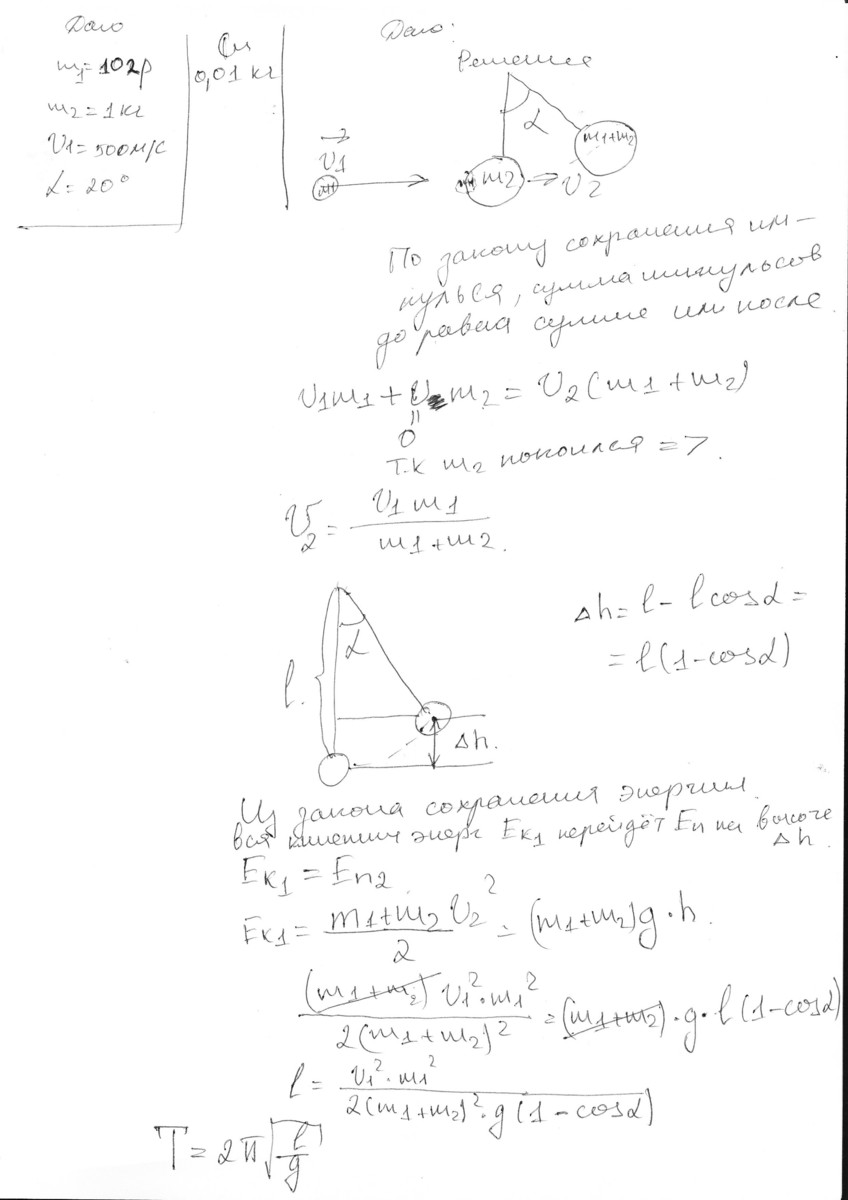 Дано
m1=10гр
m2=1кг
V1=500м/с
α=20°
Си
0,01 кг
Дано:
Решение
V1
m1
α
m1+m2
m2
V2
По закону сохранения им-
пульса, сумма импульсов
до равна сумме имп после
V1m1 + V m2 = V2(m1+m2)
"
0
т.к m2 покоился =>
V2 = V1 m1 / m1+m2.
l.
α
Δh.
Δh = l - l cosα =
= l(1-cosα)
Из закона сохранения энергии
вся кинетич энерг Ек1 перейдёт Еп на высоте
Δh.
Ек1 = Еп2
Ек1 = m1+m2 V2² / 2 = (m1+m2)g·h.
(m1+m2) V1²·m1² / 2(m1+m2)² = (m1+m2)·g·l(1-cosα)
l = V1²·m1² / 2(m1+m2)²·g(1-cosα)
T = 2π√l/g